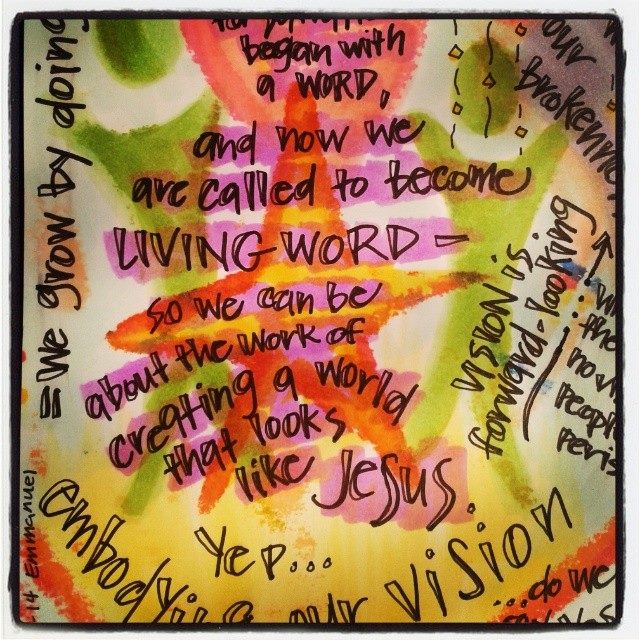 began with
a WORD,
and now we
are called to become
LIVING WORD –
so we can be
about the work of
creating a world
that looks
like JESUS.
Yep...
embodying our vision
= we grow by doing
our
brokenne
vision is
forward-looking
the
no vi
people
peris
...do we
14 Emmanuel